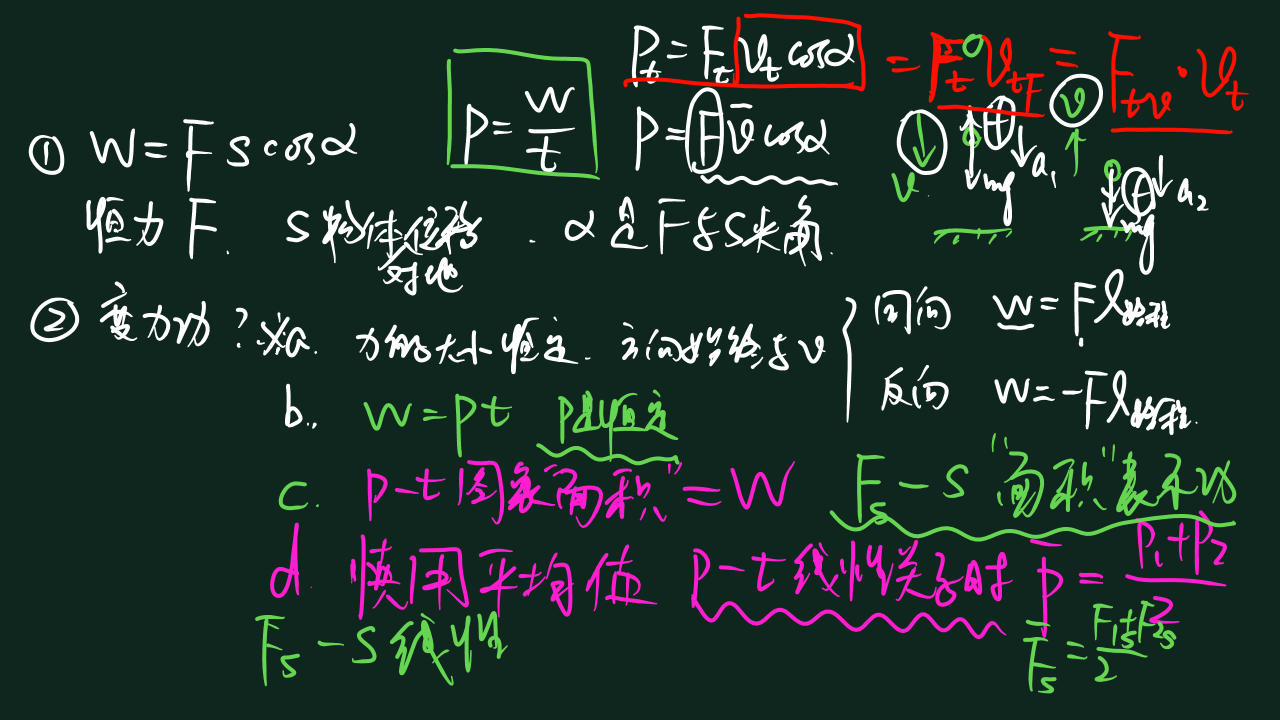 P_t = F_t v_t cosα = F_t v_{tF} = F_{tv}·v_t
P = W/t
P = F v̄ cosα
① W = F s cosα
v mg a₁ v mg a₂
恒力 F. S 物体位移. α 是 F 与 S 夹角.
对地
② 变力功? ※a. 力的大小恒定. 方向始终与 v
同向 W = F l路程
反向 W = -F l路程.
b. W = Pt P是恒定
c. P-t 图象"面积" = W F_s - S "面积"表示功
d. 使用平均值 P-t 线性关系时 P̄ = (P₁+P₂)/2
F_s - S 线性 F̄_s = (F₁s+F₂s)/2